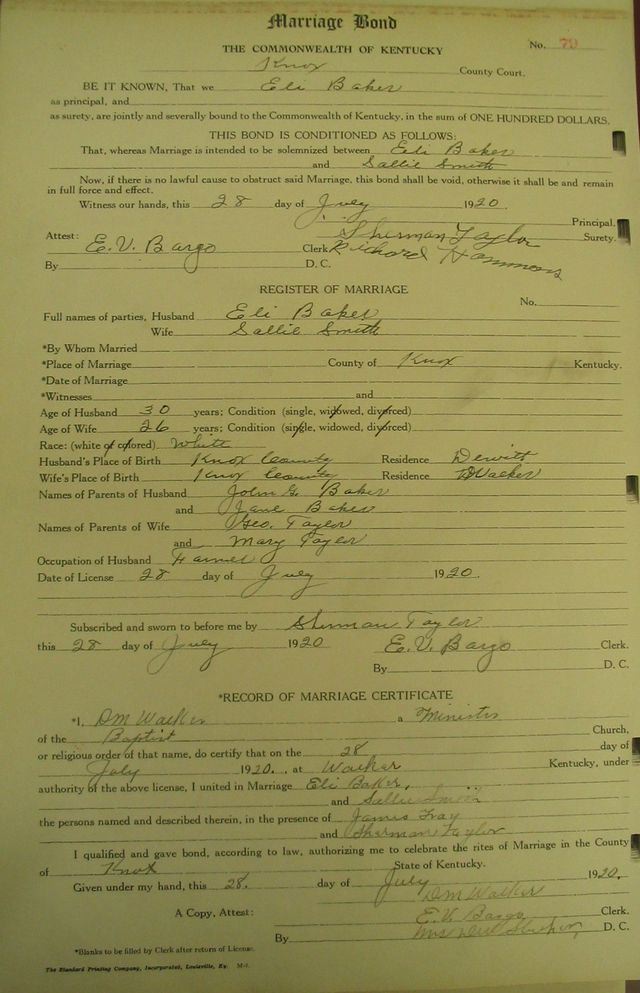 Marriage Bond
THE COMMONWEALTH OF KENTUCKY
No. 79
Knox County Court.
BE IT KNOWN, That we Eli Baker
as principal, and
as surety, are jointly and severally bound to the Commonwealth of Kentucky, in the sum of ONE HUNDRED DOLLARS.
THIS BOND IS CONDITIONED AS FOLLOWS:
That, whereas Marriage is intended to be solemnized between Eli Baker
and Sallie Smith
Now, if there is no lawful cause to obstruct said Marriage, this bond shall be void, otherwise it shall be and remain
in full force and effect.
Witness our hands, this 28 day of July 1920.
Principal.
Sherman Taylor Surety.
Attest: E. V. Bargo Clerk Richard Hammons
By D. C.
REGISTER OF MARRIAGE
No.
Full names of parties, Husband Eli Baker
Wife Sallie Smith
*By Whom Married
*Place of Marriage County of Knox Kentucky.
*Date of Marriage
*Witnesses and
Age of Husband 30 years; Condition (single, widowed, divorced)
Age of Wife 26 years; Condition (single, widowed, divorced)
Race: (white or colored) White
Husband's Place of Birth Knox County Residence Dewitt
Wife's Place of Birth Knox County Residence Walker
Names of Parents of Husband John G. Baker
and Jane Baker
Names of Parents of Wife Geo. Taylor
and Mary Taylor
Occupation of Husband Farmer
Date of License 28 day of July 1920.
Subscribed and sworn to before me by Sherman Taylor
this 28 day of July 1920 E. V. Bargo Clerk.
By D. C.
*RECORD OF MARRIAGE CERTIFICATE
*I, DM Walker a Minister
of the Baptist Church,
or religious order of that name, do certify that on the 28 day of
July 1920., at Walker Kentucky, under
authority of the above license, I united in Marriage Eli Baker,
and Sallie Smith
the persons named and described therein, in the presence of James Gray
and Sherman Taylor
I qualified and gave bond, according to law, authorizing me to celebrate the rites of Marriage in the County
of Knox State of Kentucky.
Given under my hand, this 28. day of July 1920.
DM Walker
A Copy, Attest: E. V. Bargo Clerk.
By D. C.
*Blanks to be filled by Clerk after return of License.
The Standard Printing Company, Incorporated, Louisville, Ky. M-1.